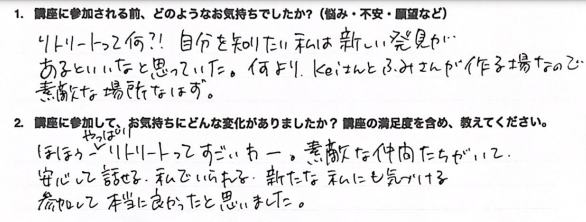 1. 講座に参加される前、どのようなお気持ちでしたか？（悩み・不安・願望など）
リトリートって何?! 自分を知りたい私は新しい発見が
あるといいなと思っていた。何より、Keiさんとふみさんが作る場なので
素敵な場所なはず。
2. 講座に参加して、お気持ちにどんな変化がありましたか？講座の満足度を含め、教えてください。
やっぱり
ほほぅ リトリートってすごいわー。素敵な仲間たちがいて、
安心して話せる、私でいられる、新たな私にも気づける
参加して本当に良かったと思いました。